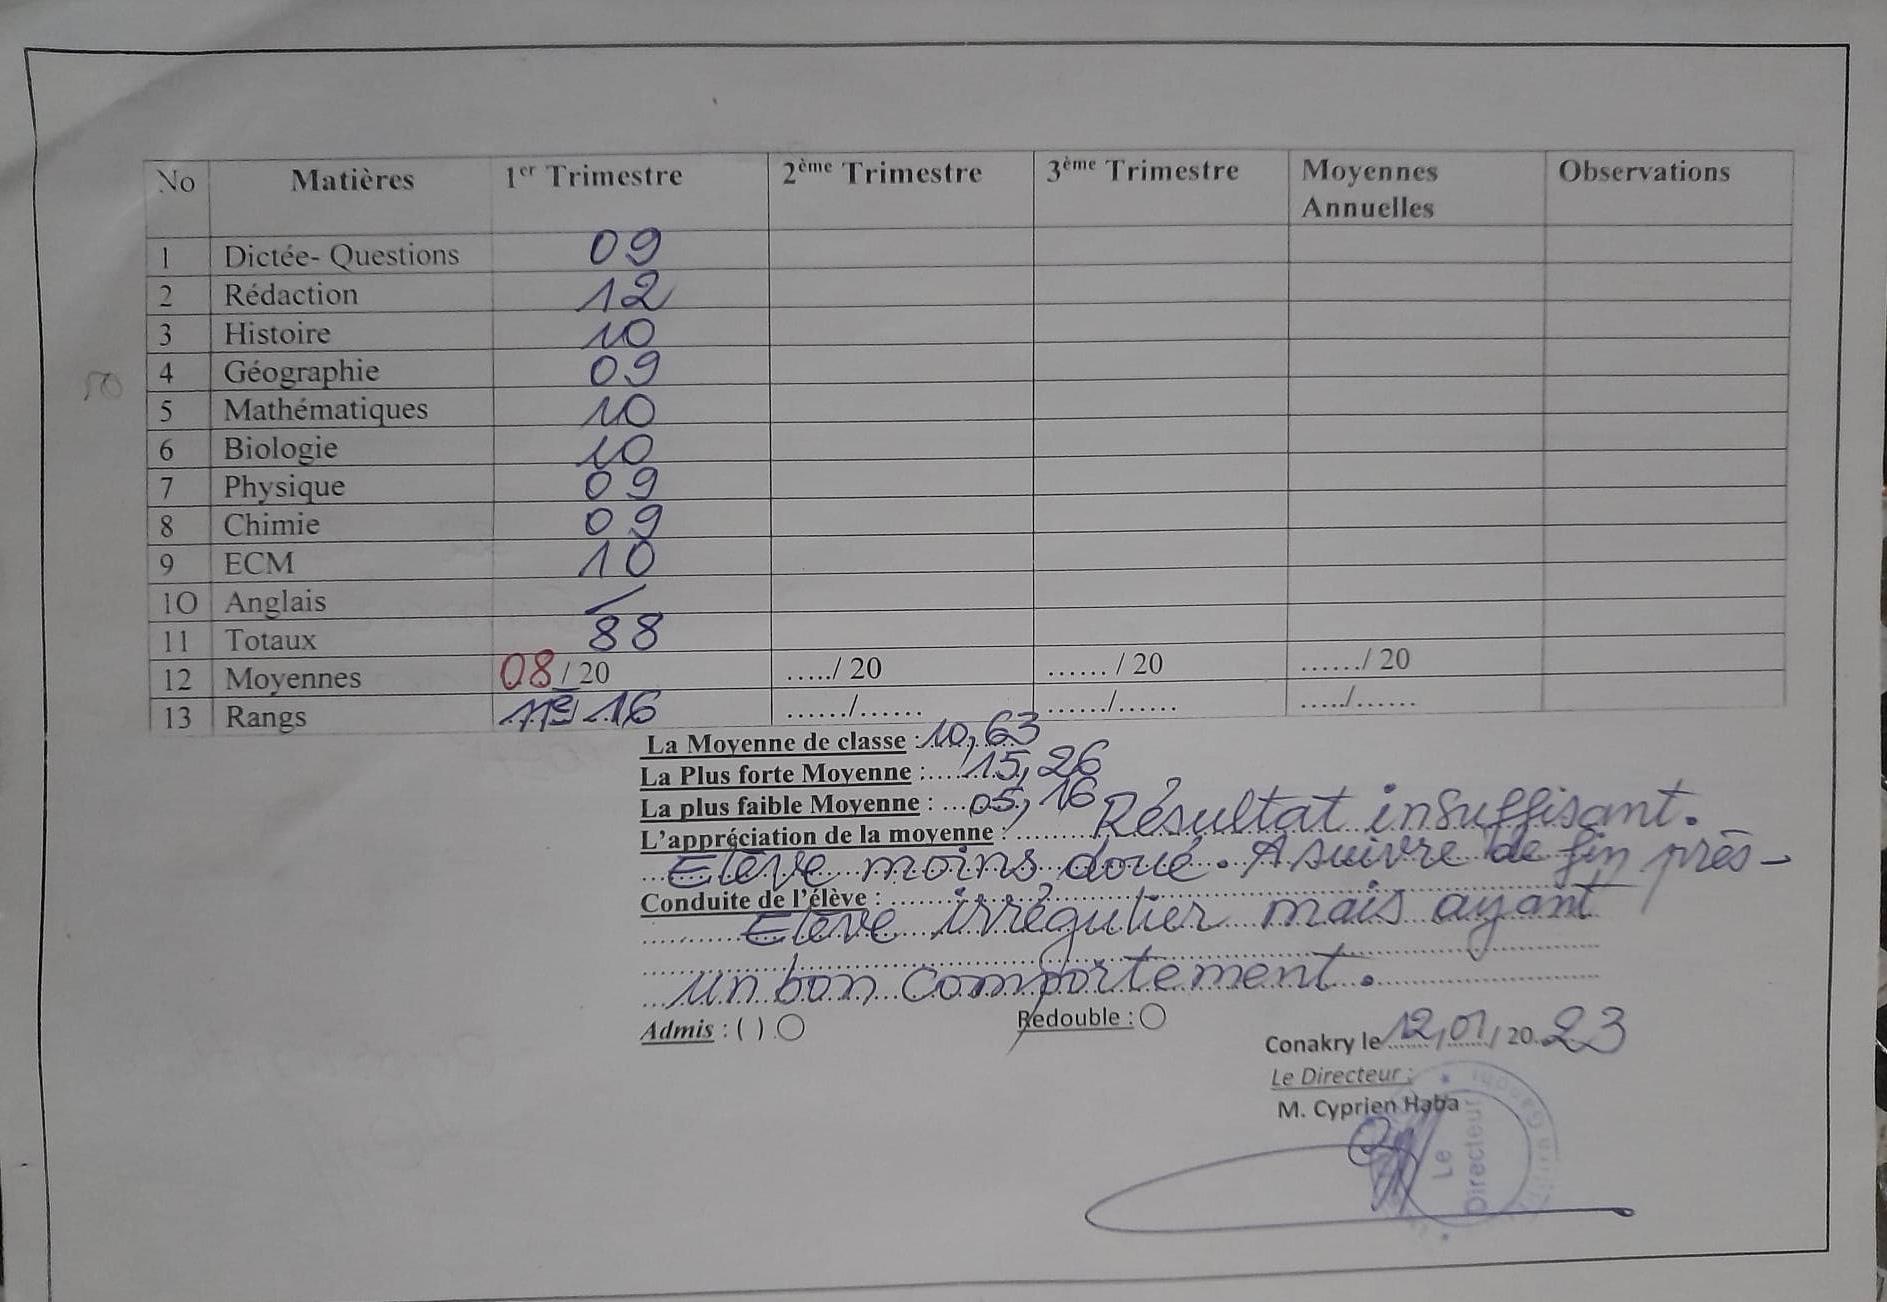 No Matières 1er Trimestre 2ème Trimestre 3ème Trimestre Moyennes Annuelles Observations
1 Dictée- Questions 09
2 Rédaction 12
3 Histoire 10
4 Géographie 09
50
5 Mathématiques 10
6 Biologie 10
7 Physique 09
8 Chimie 09
9 ECM 10
10 Anglais —
11 Totaux 88
12 Moyennes 08/20 ...../ 20 ...... / 20 ....../ 20
13 Rangs 11è 16 ....../...... ....../...... ...../......
La Moyenne de classe : 10,63
La Plus forte Moyenne :....15,26
La plus faible Moyenne : ...05,16
L'appréciation de la moyenne : Résultat insuffisant.
Elève moins doué. A suivre de fin près-
Conduite de l'élève :
Elève irrégulier mais ayant
un bon comportement.
Admis : ( ) Redouble :
Conakry le 12/01/2023
Le Directeur :
M. Cyprien Haba
Le
Directeur